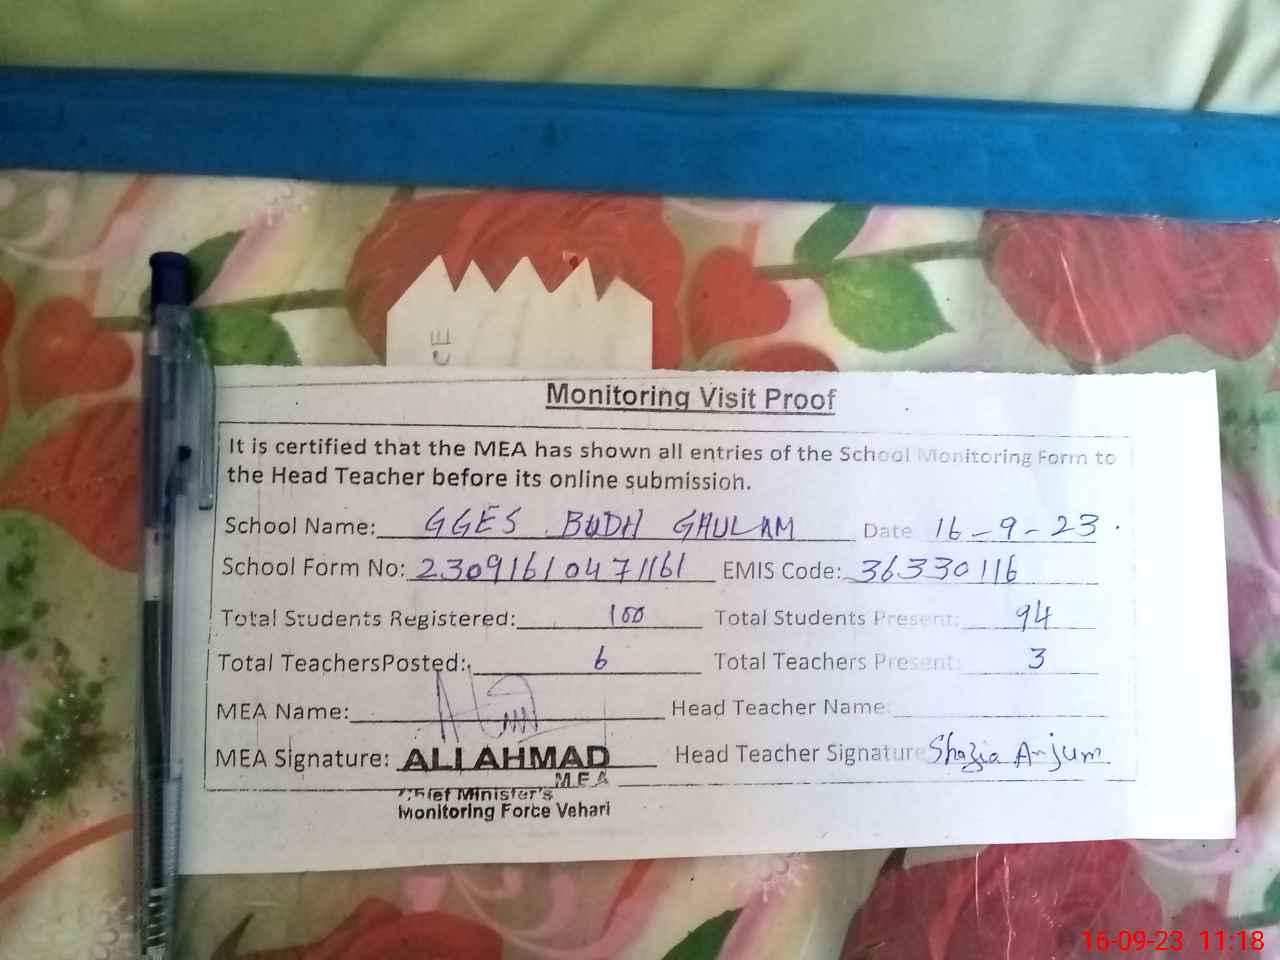 CE
Monitoring Visit Proof
It is certified that the MEA has shown all entries of the School Monitoring Form to
the Head Teacher before its online submission.
School Name: GGES BUDH GHULAM Date 16-9-23.
School Form No: 23091610471161 EMIS Code: 36330116
Total Students Registered: 100 Total Students Present: 94
Total TeachersPosted: 6 Total Teachers Present: 3
MEA Name: Head Teacher Name:
MEA Signature: ALI AHMAD Head Teacher Signature Shazia Anjum
MEA
Chief Minister's
Monitoring Force Vehari
16-09-23 11:18